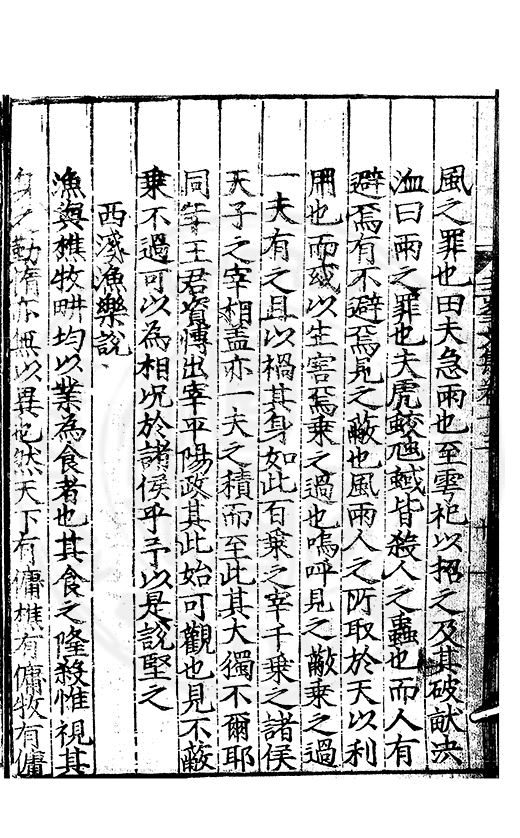 風之罪也田夫急雨也至雩祀以招之及其破畎決
洫曰雨之罪也夫虎鮫虺蜮皆殺人之蟲也而人有
避焉有不避焉見之蔽也風雨人之所取於天以利
用也而或以生害焉乗之過也嗚呼見之蔽乗之過
一夫有之且以禍其身如此百乗之宰千乗之諸侯
天子之宰相盖亦一夫之積而至此其大獨不爾耶
同年王君資博出宰平陽政其此始可觀也見不蔽
乗不過可以為相况於諸侯乎予以是說堅之
西淺漁樂說
漁與樵牧畊均以業為食者也其食之隆殺惟視其
身之勤惰亦無以異也然天下有傭樵有傭牧有傭